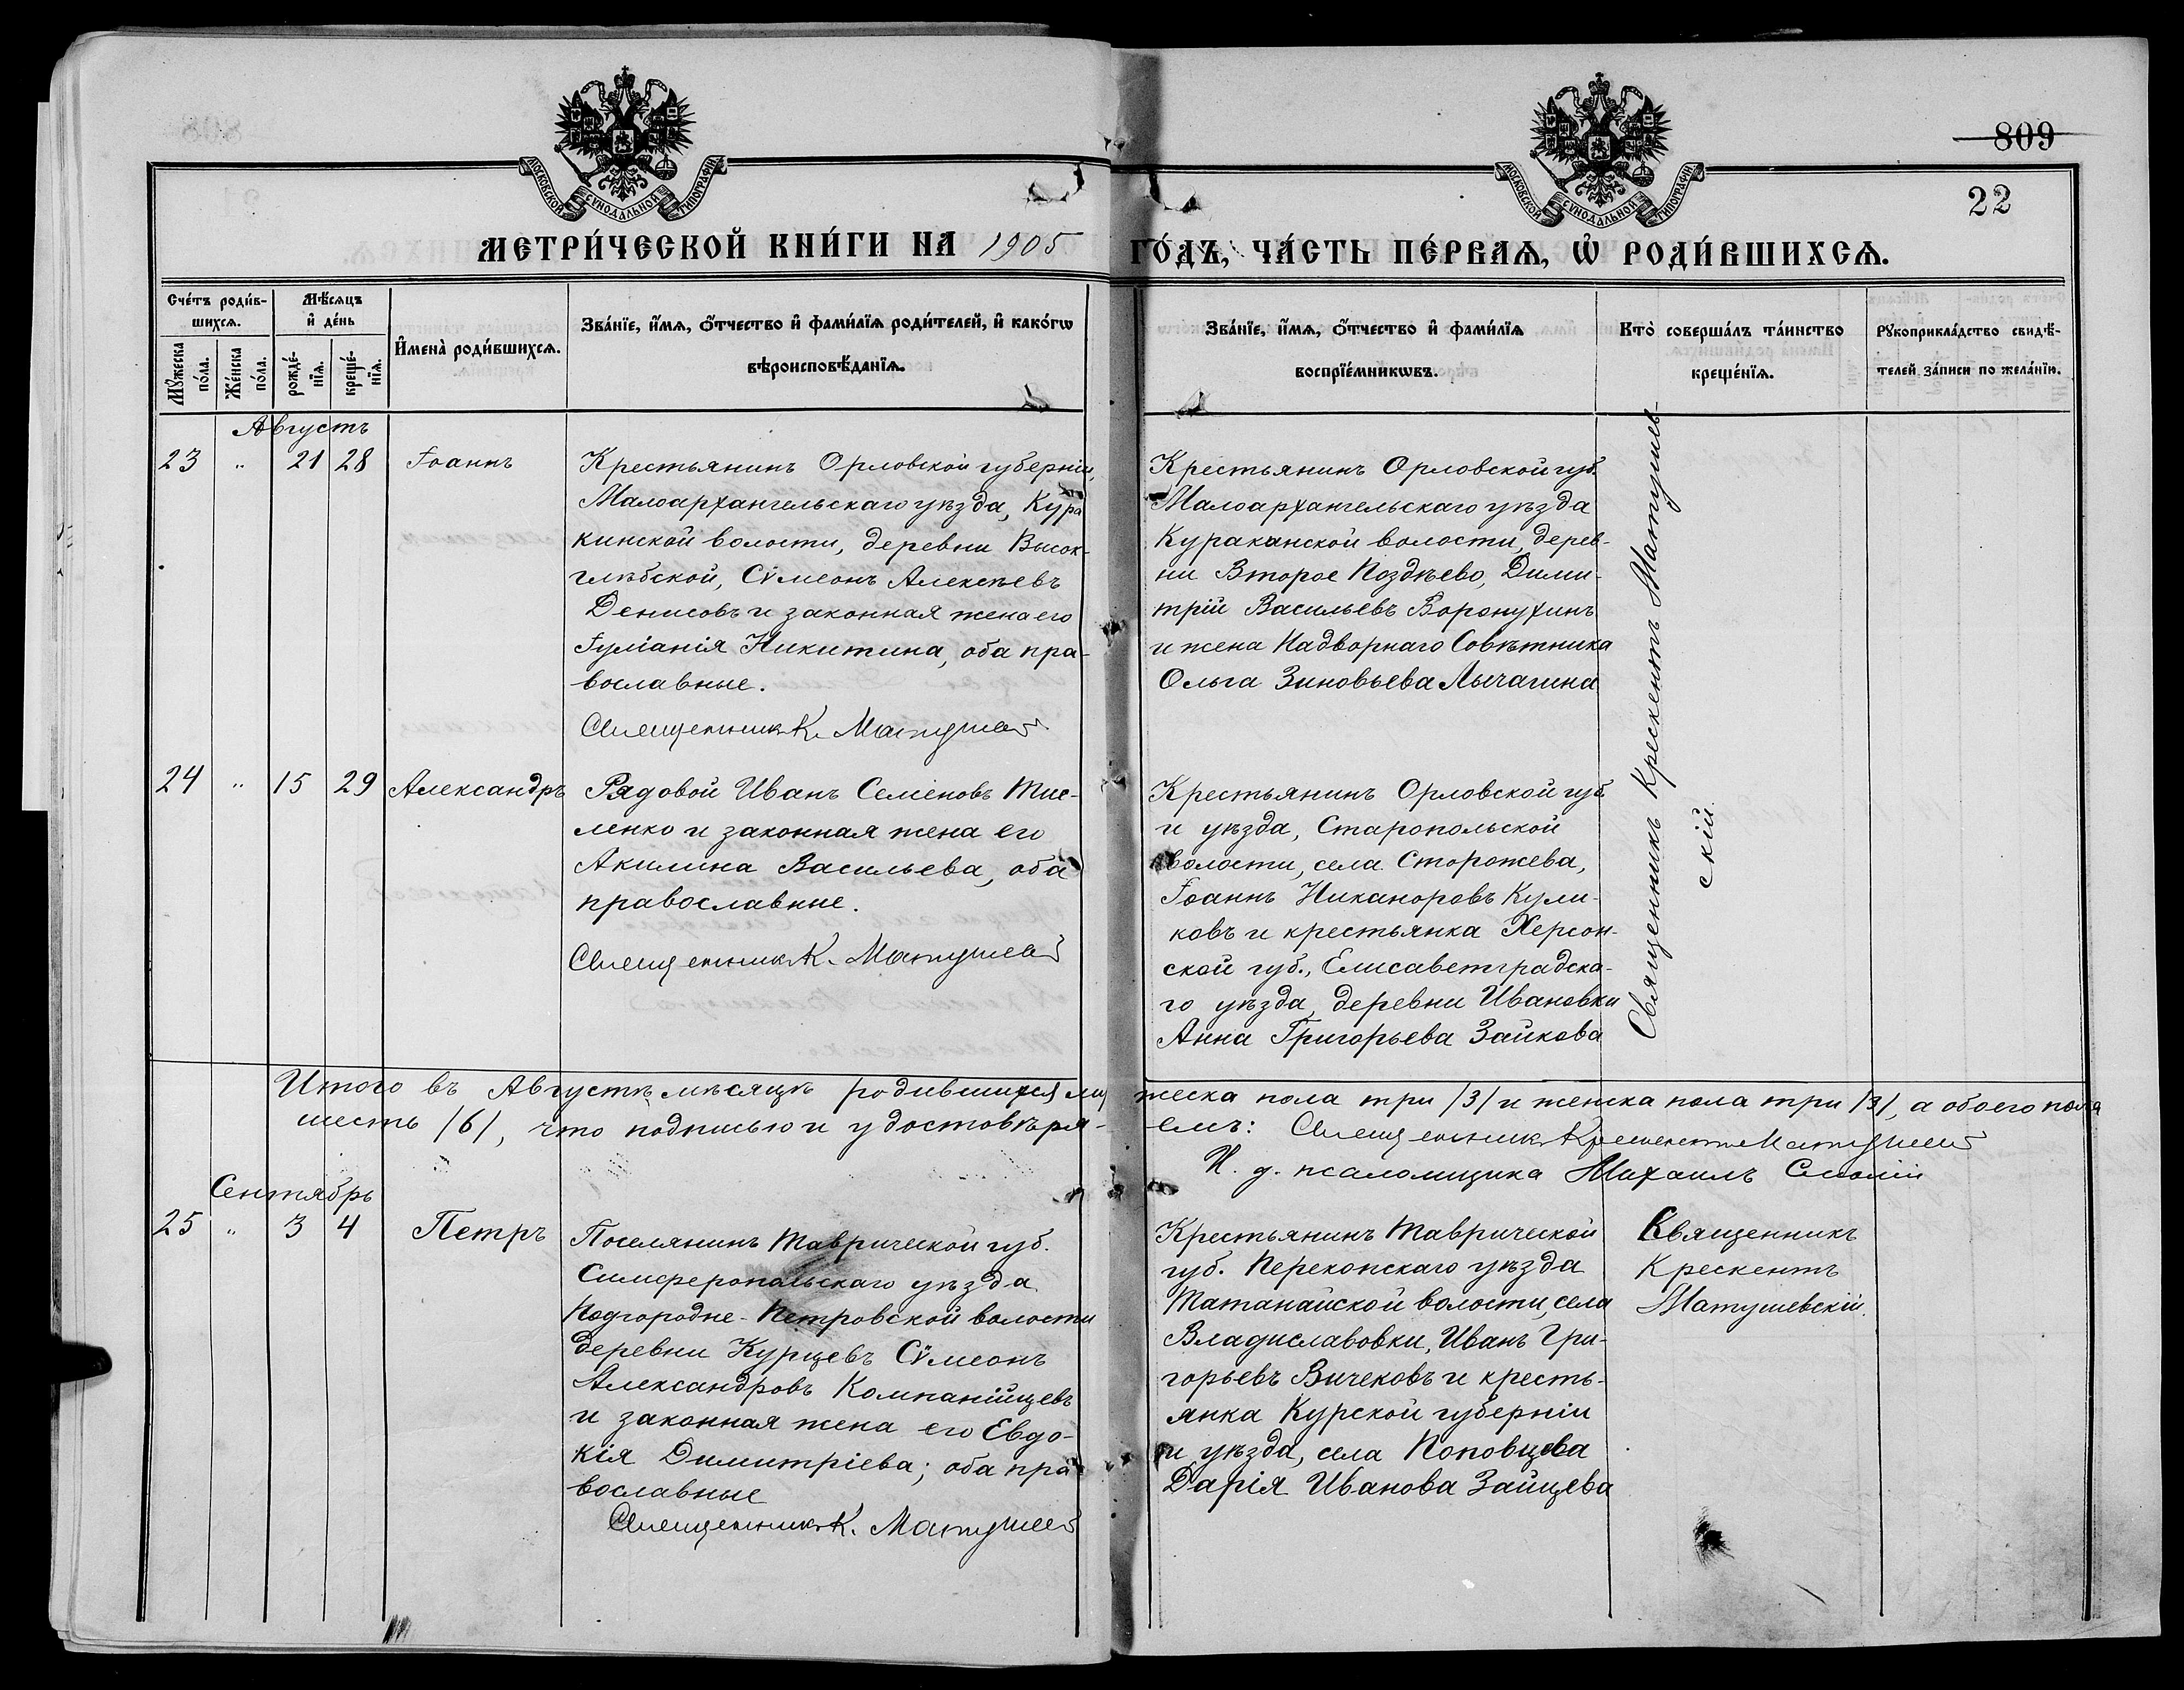 809
22
МОСКОВСКОЙ СУНОДАЛЬНОЙ ТИПОГРАФІИ
МОСКОВСКОЙ СУНОДАЛЬНОЙ ТИПОГРАФІИ
МЕТРИ́ЧЕСКОЙ КНИ́ГИ НА 1905 ГО́ДЪ, ЧА́СТЬ ПЕ́РВАѦ, Ѡ҆ РОДИ́ВШИХСѦ.
Сче́тъ роди́в-
шихсѧ.
Мꙋ́жеска
по́ла.
Же́нска
по́ла.
Мѣ́сѧцъ
и҆ де́нь
рожде́-
нїѧ.
креще́-
нїѧ.
И҆мена̀ роди́вшихсѧ.
Зва́нїе, и҆́мѧ, ѻ҆́тчество и҆ фами́лїѧ роди́телей, и҆ како́гѡ
вѣроисповѣ́данїѧ.
Зва́нїе, и҆́мѧ, ѻ҆́тчество и҆ фами́лїѧ
воспрїе́мникѡвъ.
Кто̀ соверша́лъ та́инство
креще́нїѧ.
Рꙋкоприкла́дство свидѣ́-
телей за́писи по жела́нїю.
Августъ
23 " 21 28 Іоаннъ
Крестьянинъ Орловской губерніи,
Малоархангельскаго уѣзда, Кура
кинской волости, деревни Высок-
глѣбской, Сѵмеонъ Алексѣевъ
Денисовъ и законная жена его
Іуліанія Никитина, оба пра-
вославные.
Священникъ К. Матушев
Крестьянинъ Орловской губ.
Малоархангельскаго уѣзда
Кураканской волости, дерев-
ни Второе Позднѣево, Дими-
трій Васильевъ Воронухинъ
и жена Надворнаго Совѣтника
Ольга Зиновьева Лычагина
Священникъ Крескентъ Матушев-
скій
24 " 15 29 Александръ
Рядовой Иванъ Семеновъ Тис-
ленко и законная жена его
Акилина Васильева, оба
православные.
Священникъ К. Матушев
Крестьянинъ Орловской губ.
и уѣзда, Старопольской
волости, села Сторожева,
Іоаннъ Никаноровъ Кули-
ковъ и крестьянка Херсон-
ской губ., Елисаветградска-
го уѣзда, деревни Ивановки
Анна Григорьева Зайкова
Итого въ Августѣ мѣсяцѣ родившихся му жеска пола три /3/ и женска пола три /3/, а обоего пола
шесть /6/, что подписью и удостовѣря- емъ: Священникъ Крескентъ Матушев
И. д. псаломщика Михаилъ
Сентябрь
25 " 3 4 Петръ
Поселянинъ Таврической губ.
Симферопольскаго уѣзда
Подгородне-Петровской волости
деревни Курцевъ Сѵмеонъ
Александровъ Компанійцевъ
и законная жена его Евдо-
кія Димитріева; оба пра-
вославные
Священникъ К. Матушев
Крестьянинъ Таврической
губ. Перекопскаго уѣзда
Татанайской волости, села
Владиславовки, Иванъ Гри-
горьевъ Вичековъ и кресть-
янка Курской губерніи
и уѣзда, села Поповцева
Дарія Иванова Зайцева
Священникъ
Крескентъ
Матушевскій.